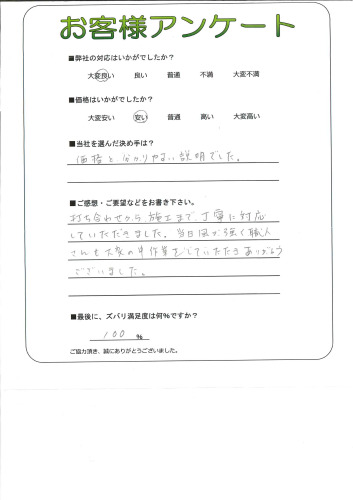 お客様アンケート
■弊社の対応はいかがでしたか?
大変良い 良い 普通 不満 大変不満
■価格はいかがでしたか?
大変安い 安い 普通 高い 大変高い
■当社を選んだ決め手は?
価格と分かりやすい説明でした。
■ご感想・ご要望などをお書き下さい。
打ち合わせから施工まで、丁寧に対応
していただきました。当日風が強く職人
さんも大変の中作業をしていただきありがとう
ございました。
■最後に、ズバリ満足度は何%ですか?
100 %
ご協力頂き、誠にありがとうございました。